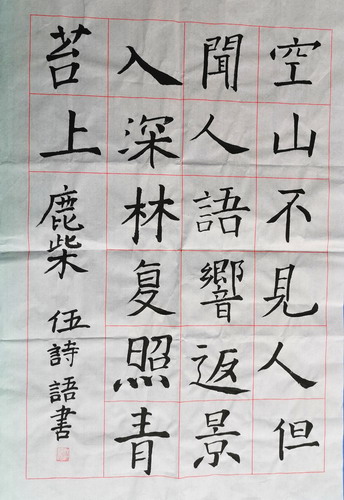 空山不見人但
聞人語響返景
入深林复照青
苔上
鹿柴 伍詩語書